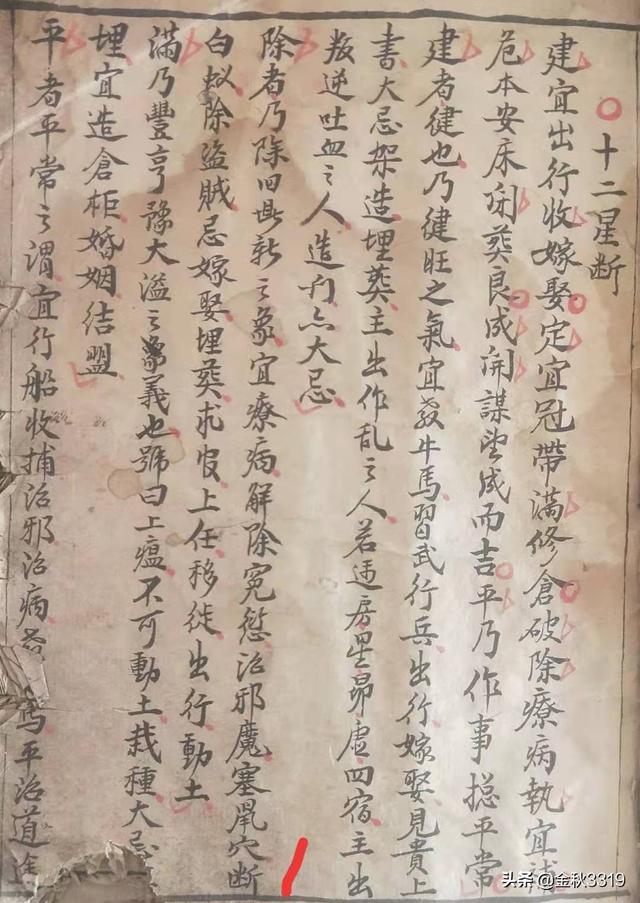 十二星断
建宜出行收嫁娶定宜冠帶满修倉破除療病執宜
危本安床闭葬良成開謀望成而吉平乃作事揔平常
建者健也乃健旺之氣宜教牛馬習武行兵出行嫁娶見貴上
書大忌架造埋葬主出作乱之人若遇房星昴虛四宿主出
叛逆吐血之人造刋亦大忌
除者乃除旧迎新之象宜療病解除冤愆治邪魔塞鼠穴断
白蚁除盜賊忌嫁娶埋葬求官上任移徙出行動土
满乃豐亨豫大溢之象義也號曰上瘟不可動土栽種大忌
埋宜造倉柜婚姻結盟
平者平常之谓宜行船收捕治邪治病平治道塗
头条@金秋3319